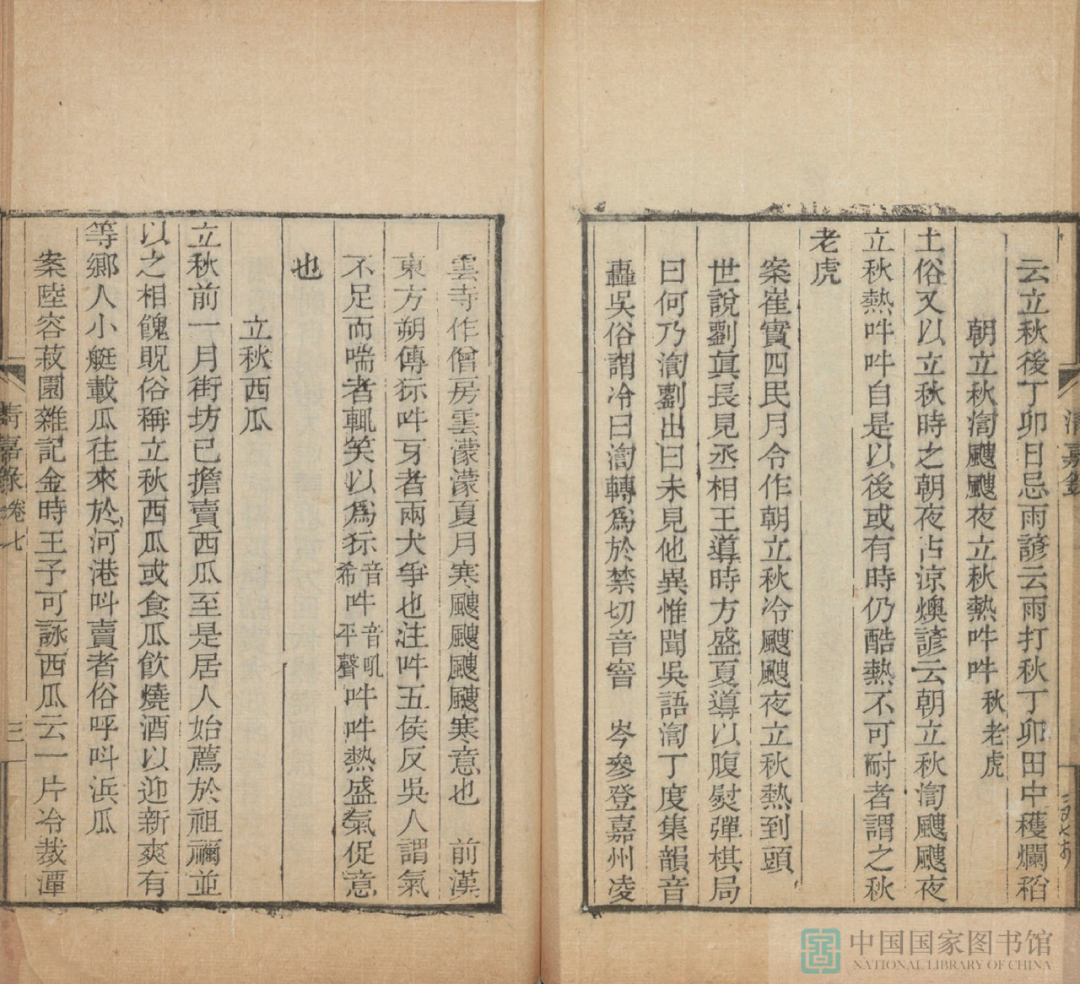 云立秋後丁卯日忌雨諺云雨打秋丁卯田中穫爛稻
朝立秋渹颼颼夜立秋熱吽吽 秋老虎
土俗又以立秋時之朝夜占涼燠諺云朝立秋渹颼颼夜
立秋熱吽吽自是以後或有時仍酷熱不可耐者謂之秋
老虎
案崔寔四民月令作朝立秋冷颼颼夜立秋熱到頭
世說劉眞長見丞相王導時方盛夏導以腹熨彈棋局
曰何乃渹劉出曰未見他異惟聞吳語渹丁度集韻音
轟吳俗謂冷曰渹轉爲於禁切音窨 岑參登嘉州凌
雲寺作僧房雲濛濛夏月寒颼颼颼颼寒意也 前漢
東方朔傳狋吽牙者兩犬爭也注吽五侯反吳人謂氣
不足而喘者輒笑以爲狋音希吽音吼平聲吽吽熱盛氣促意
也
立秋西瓜
立秋前一月街坊已擔賣西瓜至是居人始薦於祖禰並
以之相餽貺俗稱立秋西瓜或食瓜飲燒酒以迎新爽有
等鄉人小艇載瓜往來於河港叫賣者俗呼叫浜瓜
案陸容菽園雜記金時王予可詠西瓜云一片冷裁潭
清嘉錄
卷七
三
中国国家图书馆
NATIONAL LIBRARY OF CHINA